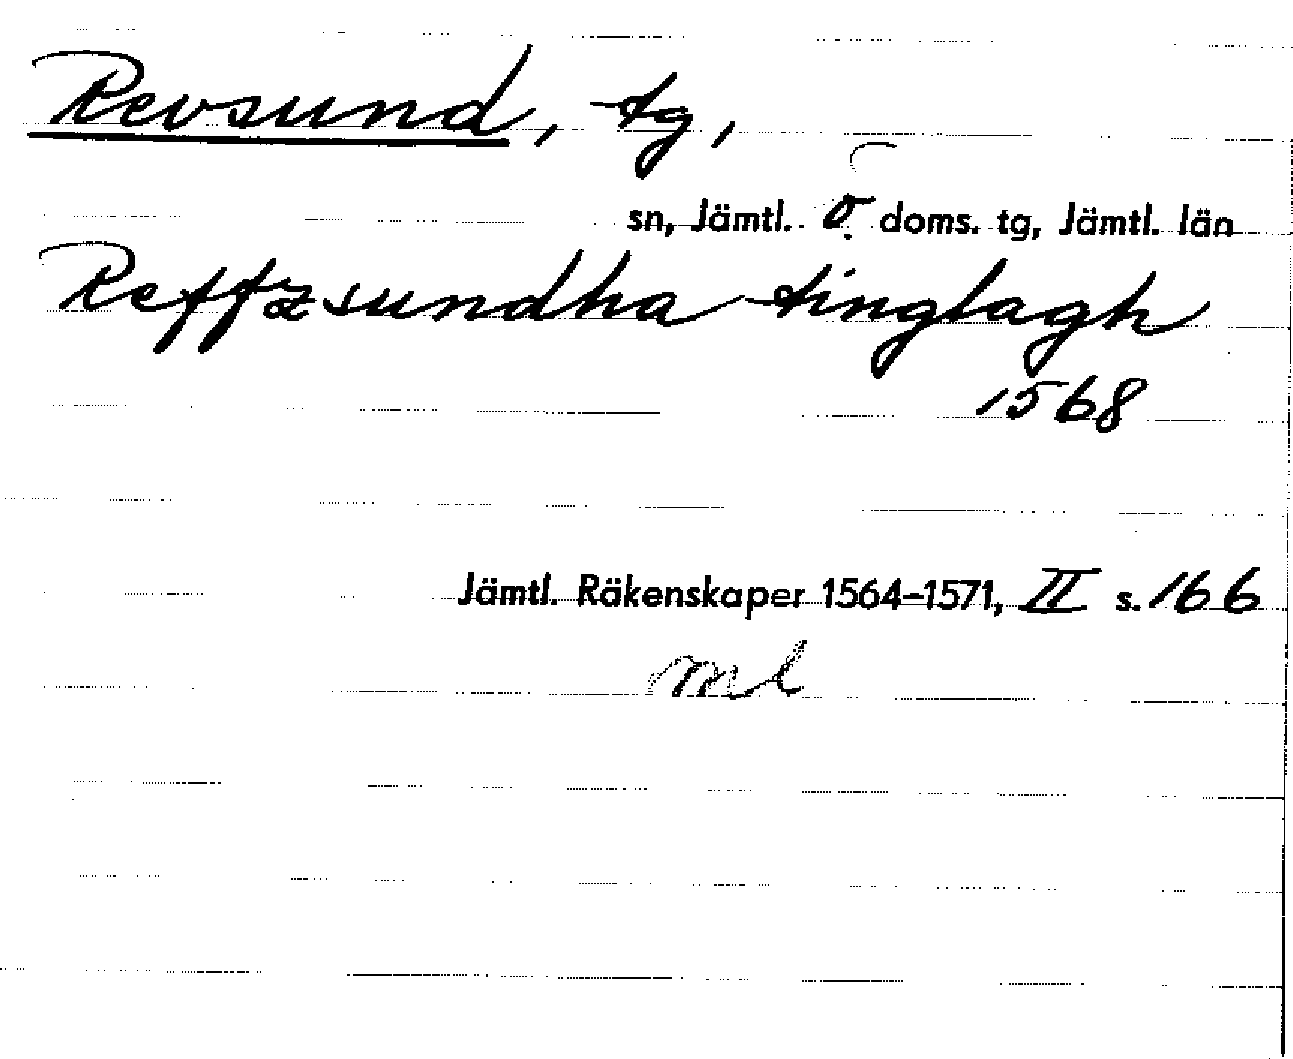 Revsund, tg,
sn, Jämtl. ö. doms. tg, Jämtl. län
Reffzsundha tinglagh
1568
Jämtl. Räkenskaper 1564-1571, II s. 166
ml